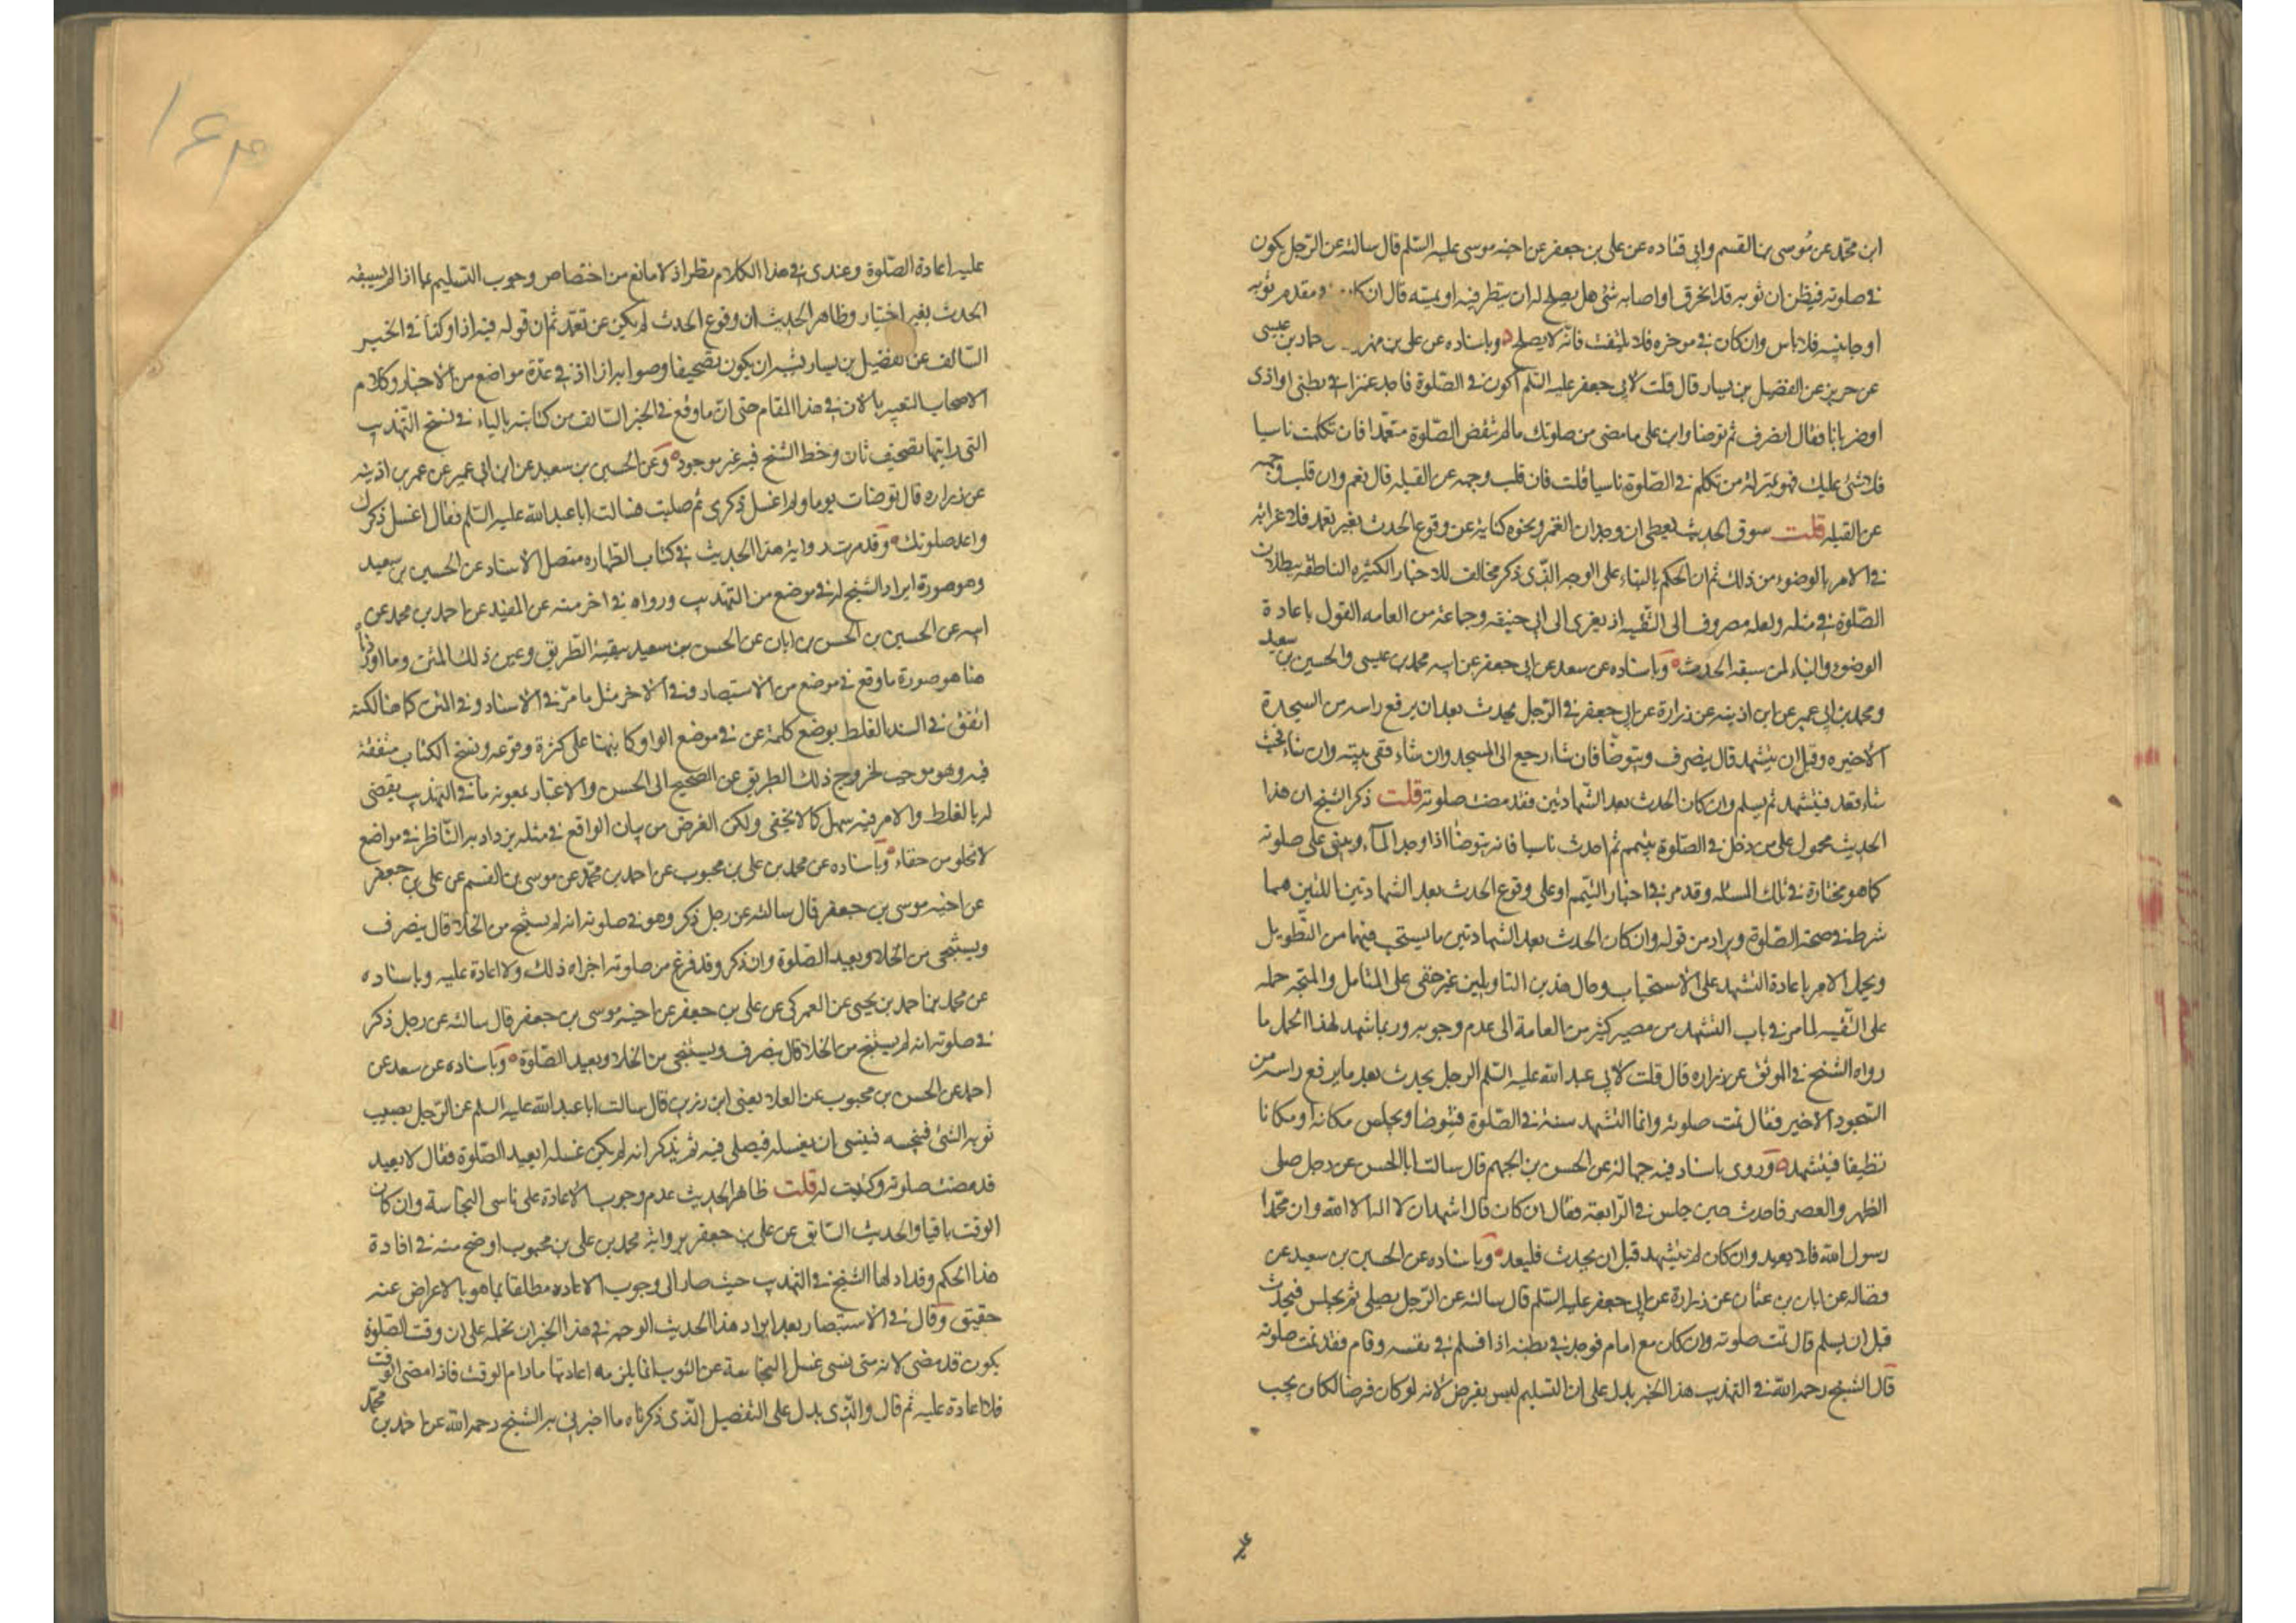 ابن محمّد عن موسى بن القسم وابى قتاده عن على بن جعفر عن اخيه موسى عليه السّلم قال سالته عن الرّجل يكون
فى صلوته فيظن ان ثوبه قد انخرق او اصابه شئ هل يصلح له ان ينظر فيه او يمسّه قال ان كان فى مقدم ثوبه
او جانبيه فلا باس وان كان فى موخره فلا يلتفت فانّه لا يصلح وباسناده عن على بن مهزيار عن حماد بن عيسى
عن حريز عن الفضيل بن يسار قال قلت لابى جعفر عليه السّلم اكون فى الصّلوة فاجد غمزا فى بطنى او اذى
او ضربانا فقال انصرف ثم توضا وابن على ما مضى من صلوتك ما لم تنقض الصّلوة متعمّدا فان تكلمت ناسيا
فلا شئ عليك فهو بمنزلة من تكلم فى الصّلوة ناسيا قلت فان قلب وجهه عن القبله قال نعم وان قلب وجهه
عن القبله قلت سوق الحديث يعطى ان وجدان الغمز ونحوه كناية عن وقوع الحدث بغير تعمد فلا غرابة
فى الامر بالوضوء من ذلك ثم ان الحكم بالبناء على الوجه الّذى ذكر مخالف للاخبار الكثيره الناطقه ببطلان
الصّلوة فى مثله ولعله مصروف الى التّقيه اذ يعزى الى ابى حنيفه وجماعة من العامه القول باعادة
الوضوء والبناء لمن سبقه الحدث وباسناده عن سعد عن ابى جعفر عن ابيه محمد بن عيسى والحسين بن سعيد
ومحمد بن ابى عمير عن ابن اذينه عن زرارة عن ابى جعفر فى الرّجل يحدث بعد ان يرفع راسه من السجدة
الاخيره وقبل ان يتشهد قال ينصرف ويتوضّا فان شاء رجع الى المسجد وان شاء ففى بيته وان شاء حيث
شاء قعد فيتشهد ثم يسلم وان كان الحدث بعد الشّهادتين فقد مضت صلوته قلت ذكر الشيخ ان هذا
الحديث محمول على من دخل فى الصّلوة بتيمم ثم احدث ناسيا فانه يتوضّا اذا وجد المآء ويبنى على صلوته
كما هو مختاره فى تلك المساله وقد مر فى اخبار التّيمم او على وقوع الحدث بعد الشهادتين اللتين هما
شرط فى صحة الصّلوة ويراد من قوله وان كان الحدث بعد الشهادتين ما يستحب فيهما من التّطويل
ويحمل الامر باعادة التشهد على الاستحباب وحال هذين التاويلين غير خفى على المتامل والمتجه حمله
على التّقيه لما مر فى باب التشهد من مصير كثير من العامة الى عدم وجوبه وربما شهد لهذا الحمل ما
رواه الشّيخ فى الموثق عن زراره قال قلت لابى عبد الله عليه السّلم الرجل يحدث بعد ما يرفع راسه من
السّجود الاخير فقال تمت صلوته وانما التشهد سنة فى الصّلوة فيتوضا ويجلس مكانه او مكانا
نظيفا فيتشهد وروى باسناد فيه جهالة عن الحسن بن الجهم قال سالت ابا الحسن عن رجل صلى
الظهر والعصر فاحدث حين جلس فى الرّابعة فقال ان كان قال اشهد ان لا اله الا الله وان محمّدا
رسول الله فلا يعيد وان كان لم يتشهد قبل ان يحدث فليعد وباسناده عن الحسين بن سعيد عن
فضاله عن ابان بن عثمان عن زرارة عن ابى جعفر عليه السّلم قال سالته عن الرّجل يصلى ثم يجلس فيحدث
قبل ان يسلم قال تمت صلوته وان كان مع امام فوجد فى بطنه اذا فسلم فى نفسه وقام فقد تمت صلوته
قال الشيخ رحمه الله فى التهذيب هذا الخبر يدل على ان التسليم ليس بفرض لانه لو كان فرضا لكان يجب
عليه
عليه اعادة الصّلوة وعندى فى هذا الكلام نظر اذ لا مانع من اختصاص وجوب التسليم بما اذا لم يسبقه
الحدث بغير اختيار وظاهر الحديث ان وقوع الحدث لم يكن عن تعمّد ثم ان قوله فيه اذا وكذا فى الخبر
السّالف عن الفضيل بن يسار يشبه ان يكون تصحيفا وصوابه ازا اذ فى عدّة مواضع من الاخبار وكلام
الاصحاب التعبير بالاز فى هذا المقام حتى انّ ما وقع فى الخبر السّالف من كتابته بالياء فى نسخ التّهذيب
التى رايتها تصحيف ثان وخط الشّيخ فيه غير موجود وعن الحسين بن سعيد عن ابن ابى عمير عن عمر بن اذينه
عن زراره قال توضات يوما ولم اغسل ذكرى ثم صليت فسالت ابا عبد الله عليه السّلم فقال اغسل ذكرك
واعد صلوتك وقد مرت رواية هذا الحديث فى كتاب الطّهاره متصل الاسناد عن الحسين بن سعيد
وهو صورة ايراد الشّيخ له فى موضع من التهذيب ورواه فى اخر منه عن المفيد عن احمد بن محمد عن
ابيه عن الحسين بن الحسن بن ابان عن الحسين بن سعيد ببقية الطّريق وعين ذلك المتن وما اوردناه
هنا هو صورة ما وقع فى موضع من الاستبصار وفى الاخر مثل ما مرّ فى الاسناد وفى المتن كما هنا لكنه
اتفق فى السند الغلط بوضع كلمة عن فى موضع الواو كما نبهنا على كثرة وقوعه ونسخ الكتاب متفقة
فيه وهو موجب لخروج ذلك الطريق عن الصّحيح الى الحسن والاعتبار بمعونه ما فى التهذيب يقضى
له بالغلط والامر فيه سهل كما لا يخفى ولكن الغرض من بيان الواقع فى مثله يزداد به النّاظر فى مواضع
لا تخلو من خفاء وباسناده عن محمد بن على بن محبوب عن احمد بن محمّد عن موسى بن القسم عن على بن جعفر
عن اخيه موسى بن جعفر قال سالته عن رجل ذكر وهو فى صلوته انه لم يستنج من الخلا قال ينصرف
ويستنجى من الخلا ويعيد الصّلوة وان ذكر وقد فرغ من صلوته اجزاه ذلك ولا اعادة عليه وباسناده
عن محمد بن احمد بن يحيى عن العمركى عن على بن جعفر عن اخيه موسى بن جعفر قال سالته عن رجل ذكر
فى صلوته انه لم يستنج من الخلا قال ينصرف ويستنجى من الخلا ويعيد الصّلوة وباسناده عن سعد عن
احمد عن الحسن بن محبوب عن العلا يعنى ابن رزين قال سالت ابا عبد الله عليه السلم عن الرّجل يصيب
ثوبه الشئ فينجسه فينسى ان يغسله فيصلى فيه ثم يذكر انه لم يكن غسله ايعيد الصّلوة فقال لا يعيد
قد مضت صلوته وكتبت له قلت ظاهر الحديث عدم وجوب الاعادة على ناسى النجاسة وان كان
الوقت باقيا والحديث السّابق عن على بن جعفر برواية محمد بن على بن محبوب اوضح منه فى افادة
هذا الحكم وقد اولها الشّيخ فى التهذيب حيث صار الى وجوب الاعاده مطلقا بما هو بالاعراض عنه
حقيق وقال فى الاستبصار بعد ايراد هذا الحديث الوجه فى هذا الخبر ان نحمله على ان وقت الصّلوة
يكون قد مضى لانه متى نسى غسل النجاسة عن الثوب انما يلزمه اعادتها ما دام الوقت فاذا مضى الوقت
فلا اعادة عليه ثم قال والّذى يدل على التفصيل الّذى ذكرناه ما اخبرنى به الشّيخ رحمه الله عن احمد بن محمّد